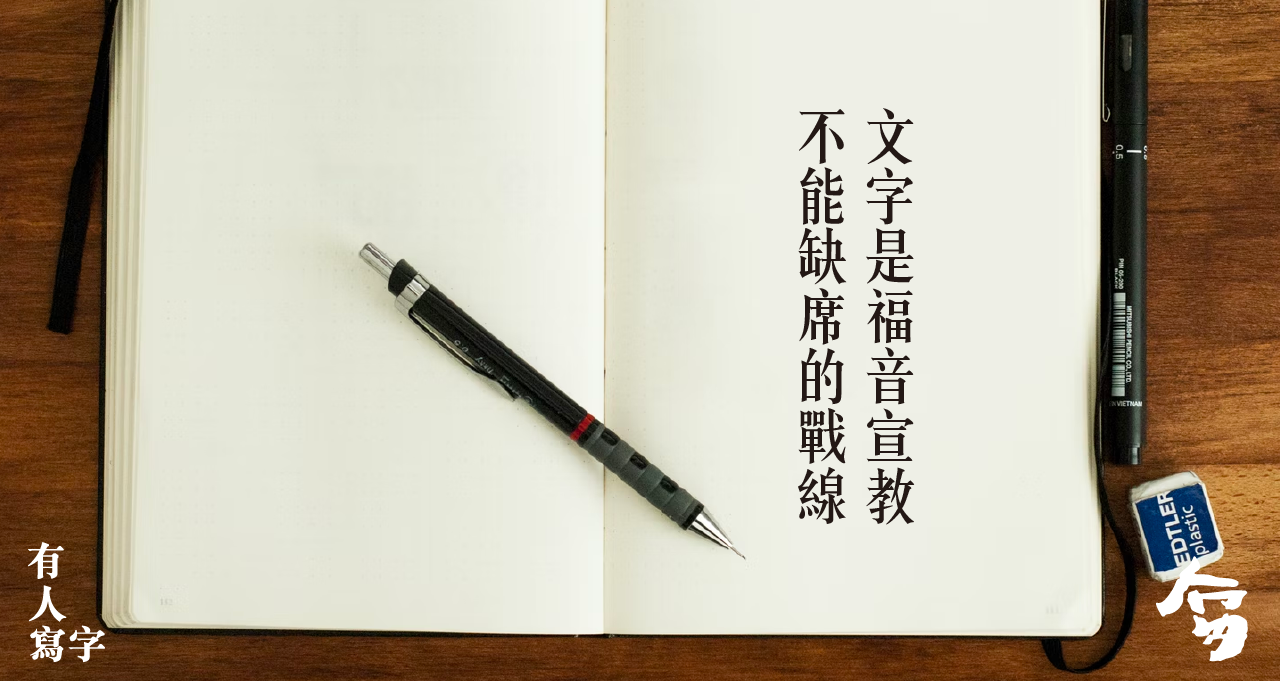 文字是福音宣教
不能缺席的戰線
有人
寫字
0.5
PIN 05-200
MITSUBISHI PENCIL CO., LTD.
VIETNAM
EDTLER
plastic